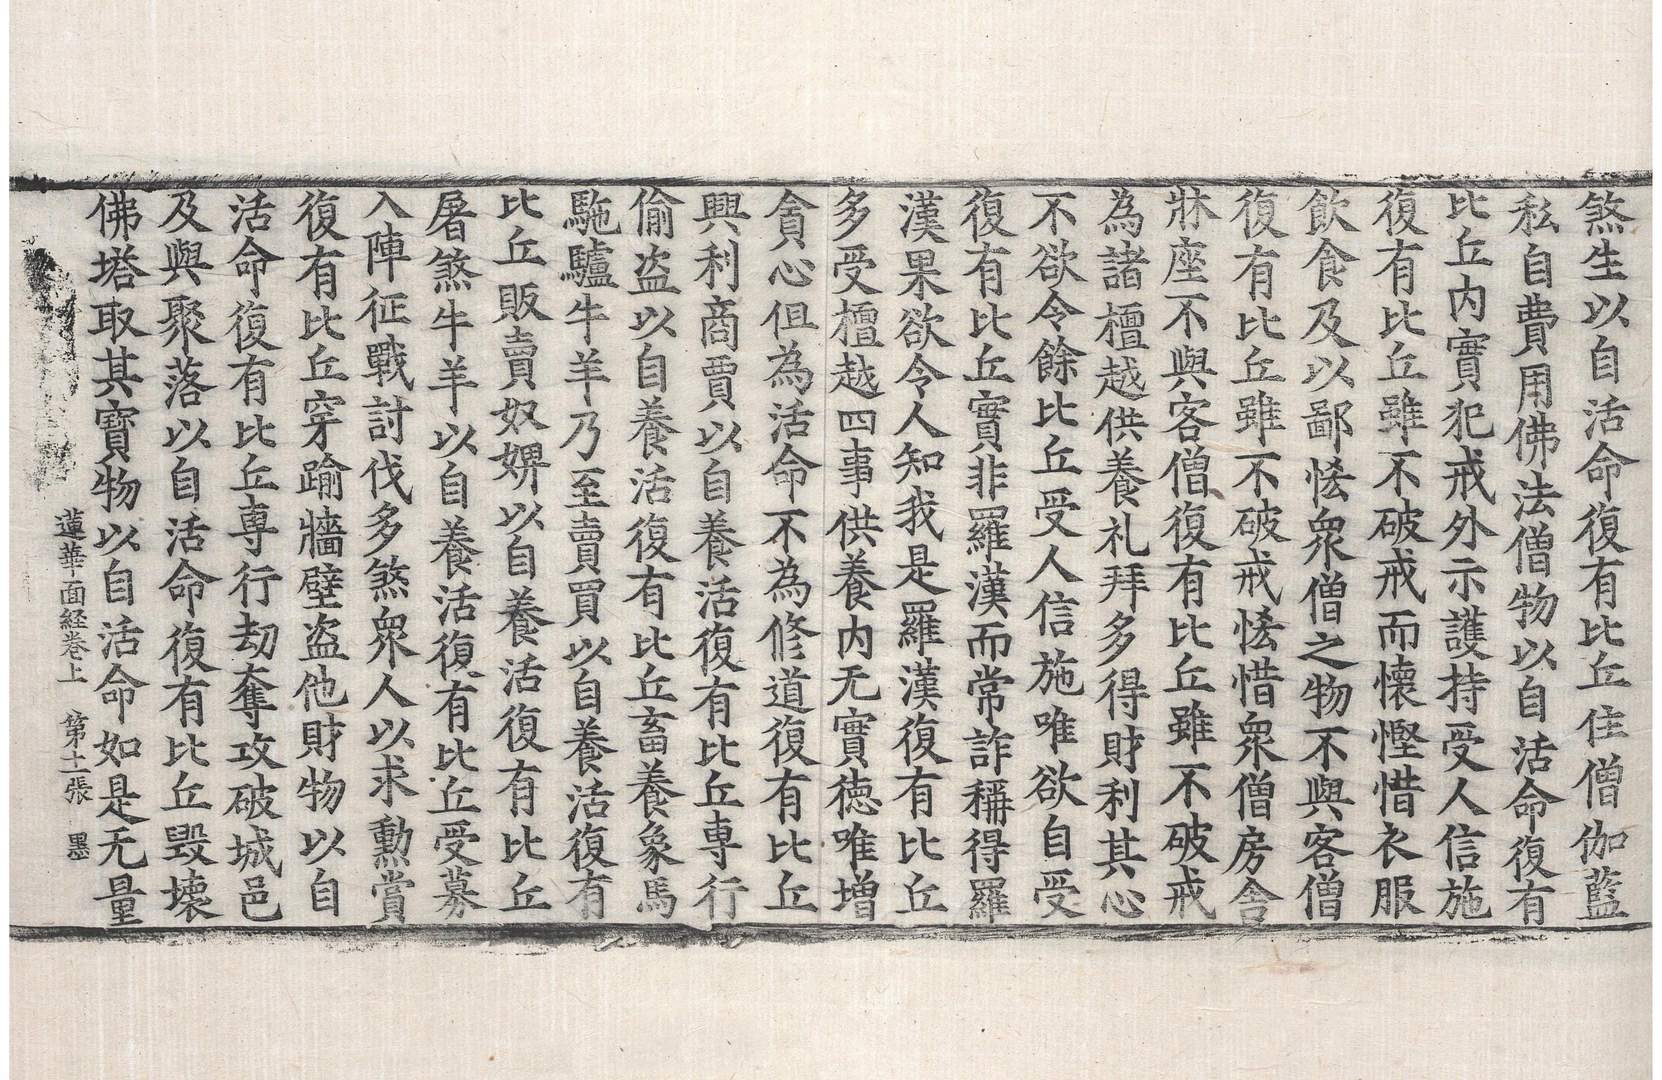 煞生以自活命復有比丘住僧伽藍
私自費用佛法僧物以自活命復有
比丘内實犯戒外示護持受人信施
復有比丘雖不破戒而懷慳惜衣服
飲食及以鄙悋衆僧之物不與客僧
復有比丘雖不破戒悋惜衆僧房舍
牀座不與客僧復有比丘雖不破戒
為諸檀越供養礼拜多得財利其心
不欲令餘比丘受人信施唯欲自受
復有比丘實非羅漢而常詐稱得羅
漢果欲令人知我是羅漢復有比丘
多受檀越四事供養内无實德唯増
貪心但為活命不為修道復有比丘
興利商賈以自養活復有比丘専行
偷盗以自養活復有比丘畜養象馬
駞驢牛羊乃至賣買以自養活復有
比丘販賣奴婢以自養活復有比丘
屠煞牛羊以自養活復有比丘受募
入陣征戰討伐多煞衆人以求勲賞
復有比丘穿踰牆壁盗他財物以自
活命復有比丘専行劫奪攻破城邑
及與聚落以自活命復有比丘毀壞
佛塔取其寶物以自活命如是无量
蓮華面経巻上 第十一張 墨